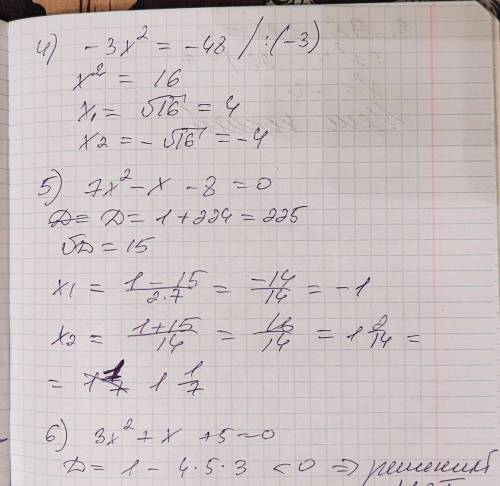 4) -3x² = -48 /:(-3)
x² = 16
x₁ = √16 = 4
x2 = -√16 = -4
5) 7x² - x - 8 = 0
D = D = 1 + 224 = 225
√D = 15
x1 = (1 - 15)/(2·7) = -14/14 = -1
x2 = (1+15)/14 = 16/14 = 1 2/14 =
= 1 1/7 1 1/7
6) 3x² + x + 5 = 0
D = 1 - 4·5·3 < 0 ⇒ решений